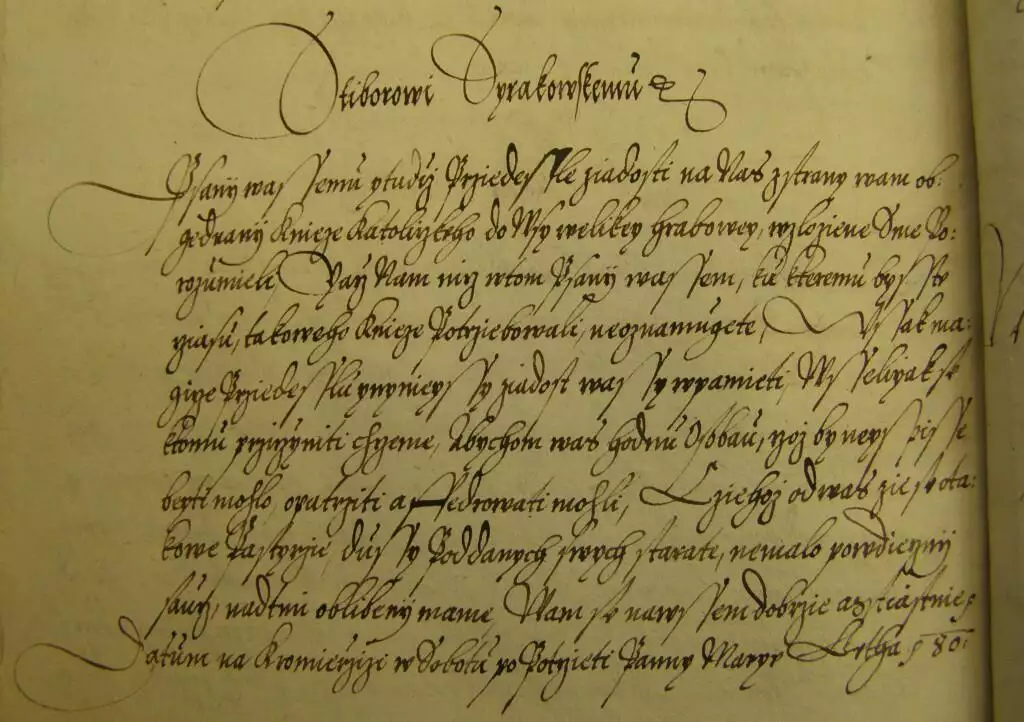 Stiborowi Syrakowskemu
Psany wassemu ytudijz Prziedessle ziadosti na Nas zstrany wam ob:
gednany Knieze Katolizkeho do Wsy welikey Hrabowey, wzloziene Sme Po:
rozumieli, Nay Nam nicz wtom Psany wassem, ku kteremu bysste
cziasu, takoweho Knieze Potrziebowali, neoznamugete, Wssak ma:
gicze Prziedesslu ynynieyssy ziadost wassy wpamieti, Wsseliyak se
ktomu przicziniti chczeme, Abychom was hodnu Osobau, czoz by neyspisse
beyti mohlo, opatrziti a ffedrowati mohli, Cziehoz odwas zie se ota:
kowe Pastyrzie, dussy Poddanych swych starate, nemalo powdieczny
saucz, nadtim oblibeny mame, Wam se nawssem dobrzie asstiastnie
Datum na Kromierzizi w Sobotu po Poczieti Panny Maryy Letha 80